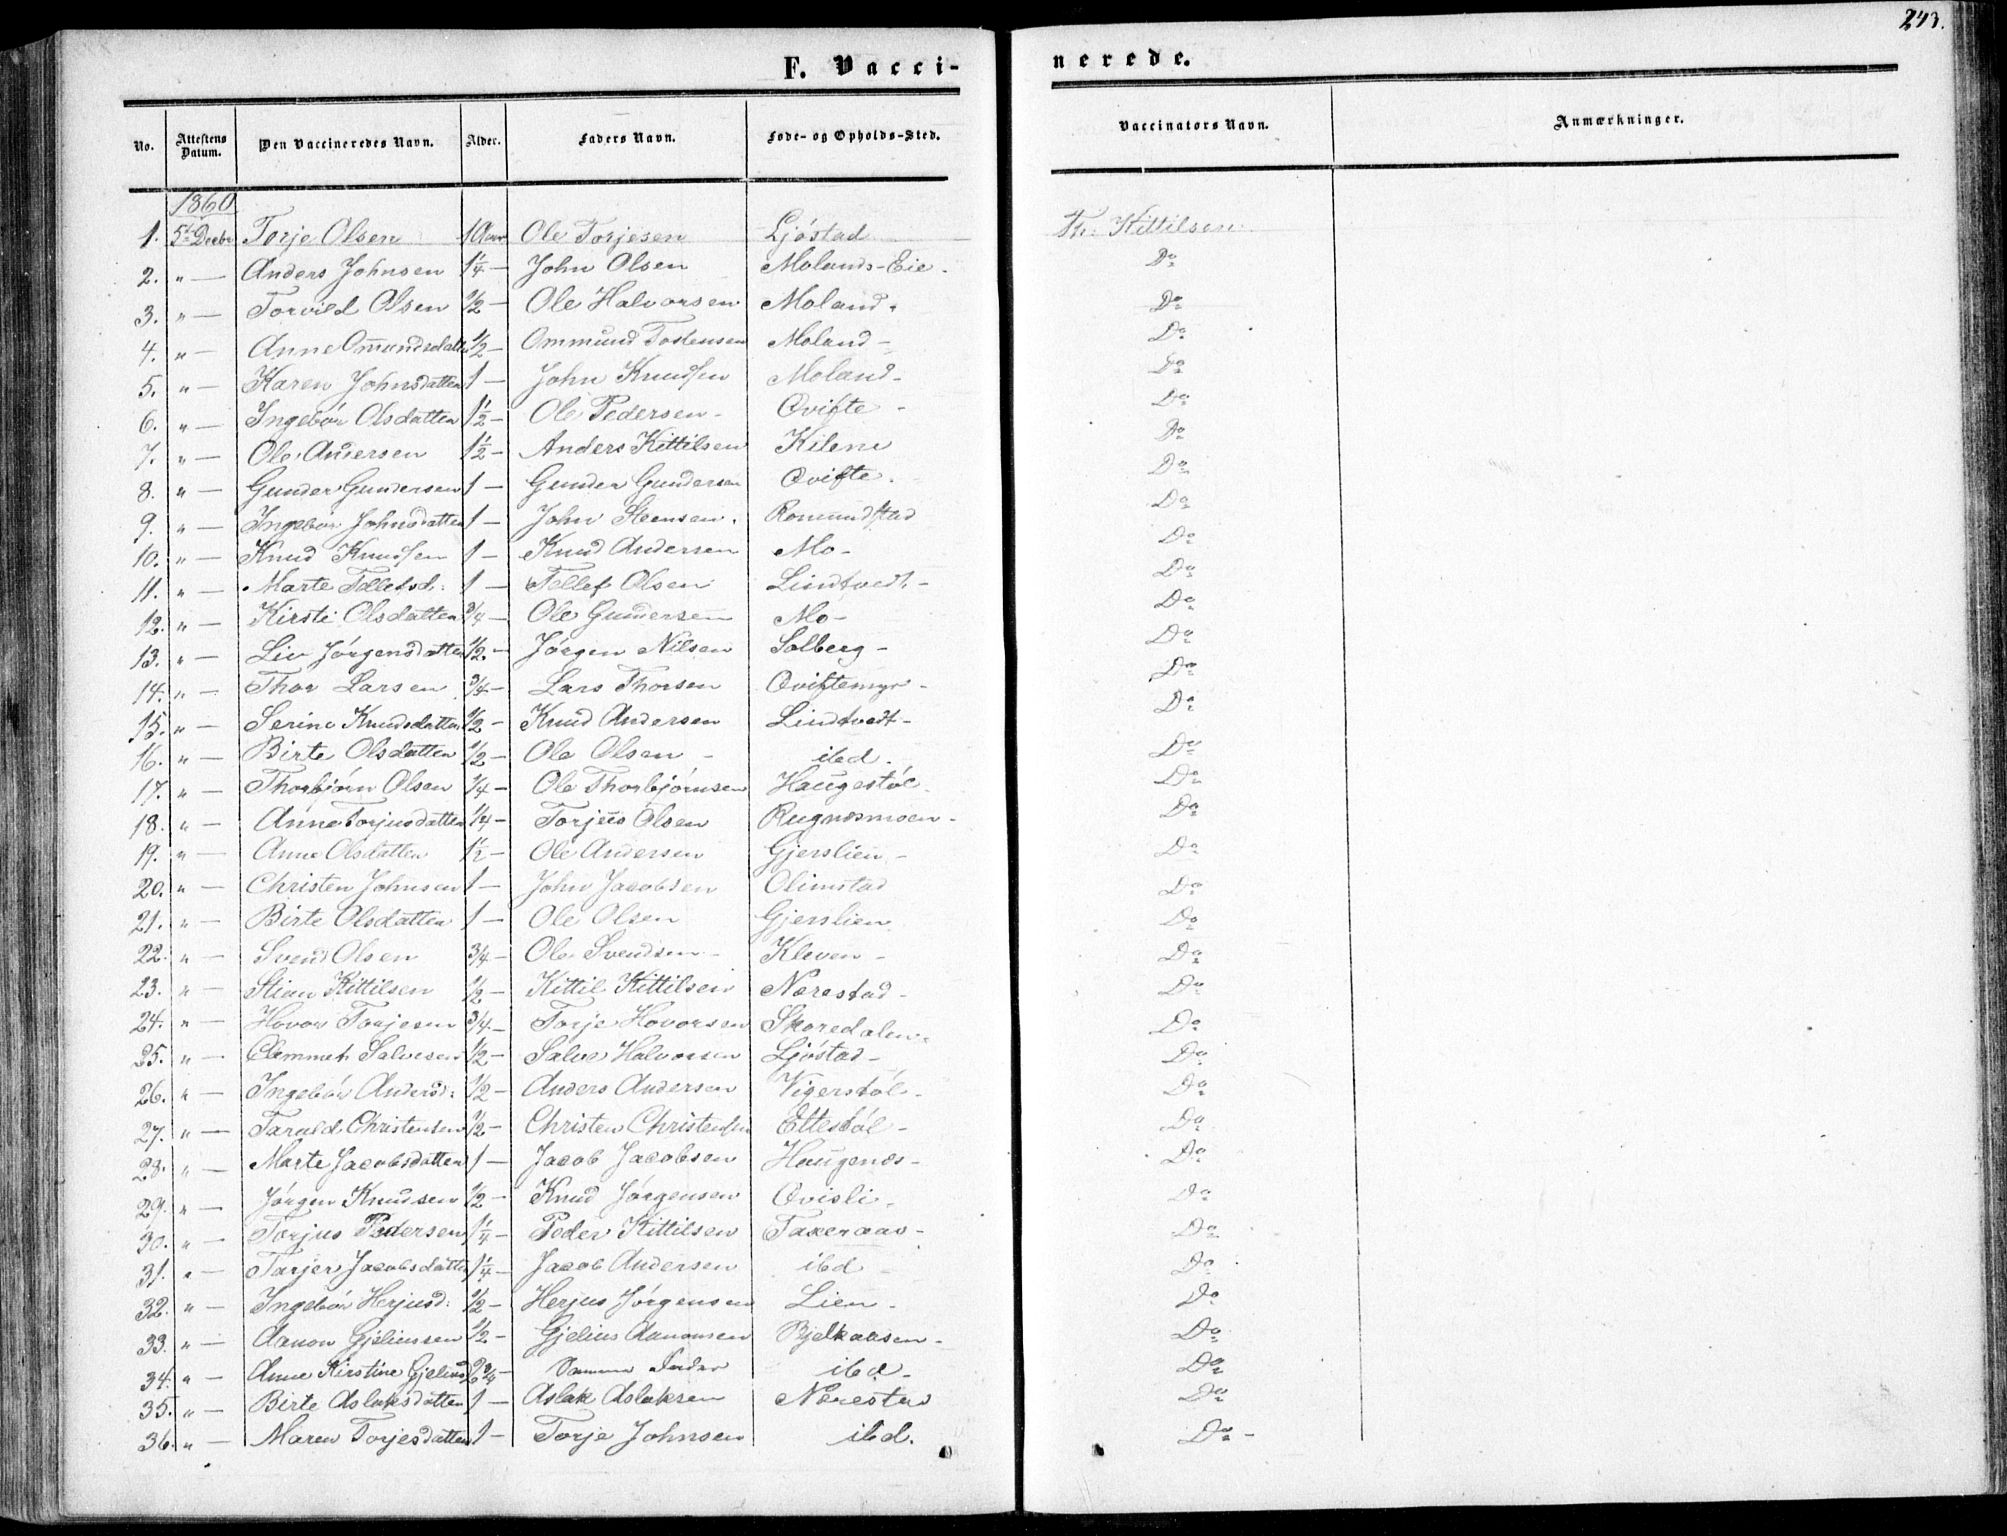 243.
F. Vacci-
nerede.
No. Attestens Datum. Den Vaccineredes Navn. Alder. Faders Navn. Føde- og Opholds-Sted. Vaccinators Navn. Anmærkninger.
1860
1. 5te Decbr Torje Olsen 1 Aar Ole Torjesen Ljøstad Kittilsen
2. " — Anders Johnsen 1 1/4 — John Olsen Molands-Eie. Do
3. " — Torvild Olsen 1/2 — Ole Halvorsen Moland. Do
4. " — Anne Omundsdatter 1/2 — Ommund Tostensen Moland — Do
5. " — Karen Johnsdatter 1 — John Knudsen Moland — Do
6. " — Ingebør Olsdatter 1 1/2 — Ole Pedersen — Qvifte — Do
7. " — Ole Andersen 1 1/2 — Anders Kittilsen Kilene Do
8. " — Gunder Gundersen 1 — Gunder Gundersen Qvifte. Do
9. " — Ingebør Johnsdatter 1 — John Steensen. Romundstad Do
10. " — Knud Knudsen 1 — Knud Andersen Mo — Do
11. " — Marte Tellefsd: 1 — Tellef Olsen Lindtvedt — Do
12. " — Kirsti Olsdatter 3/4 — Ole Gundersen Mo — Do
13. " — Liv Jørgensdatter 1/2. — Jørgen Nilsen Solberg — Do
14. " — Thor Larsen 3/4 — Lars Thorsen Qviftemyr — Do
15. " — Serine Knudsdatter 1/2 — Knud Andersen Lindtvedt — Do
16. " — Birte Olsdatter 1/2 — Ole Olsen — ibd. Do
17. " — Thorbjørn Olsen 1/4 — Ole Thorbjørnsen Haugestøl. Do
18. " — Anne Torjusdatter 1/4 — Torjus Olsen Rugnæsmoen — Do
19. " — Anne Olsdatter 1 1/2 — Ole Andersen Gjerslien — Do
20. " — Christen Johnsen 1 — John Jacobsen Olimstad Do
21. " — Birte Olsdatter 1 — Ole Olsen Gjerslien Do
22. " — Svend Olsen 3/4 — Ole Svendsen — Kleven — Do
23. " — Stian Kittilsen 1/2 — Kittil Kittilsen Nærestad — Do
24. " — Hovor Torjesen 3/4 — Torje Hovorsen Skoredalen. Do
25. " — Clemmet Salvesen 1/2 — Salve Halvorsen Ljøstad — Do
26. " — Ingebør Andersd: 1/2 — Anders Andersen Vigerstøl — Do
27. " — Tarald Christensen 1/2 — Christen Christensen Eltestøl — Do
28. " — Marte Jacobsdatter 1 — Jacob Jacobsen Haugenæs — Do
29. " — Jørgen Knudsen 1/2 — Knud Jørgensen Qvisli. Do
30. " — Torjus Pedersen 1 1/4 — Peder Kittilsen Taxeraas — Do
31. " — Tarjer Jacobsdatter 1 1/4 — Jacob Andersen ibd — Do
32. " — Ingebør Herjusd: 1/2 — Herjus Jørgensen Lien — Do
33. " — Aanon Gjeliussen 1/2 — Gjelius Aanonsen Bjelkaasen — Do
34. " — Anne Kirstine Gjeliusd 2 3/4 — Samme Fader ibd — Do
35. " — Birte Aslaksdatter 1 — Aslak Aslaksen Nærestad Do
36. " — Maren Torjesdatter 1 — Torje Johnsen ibd. Do —